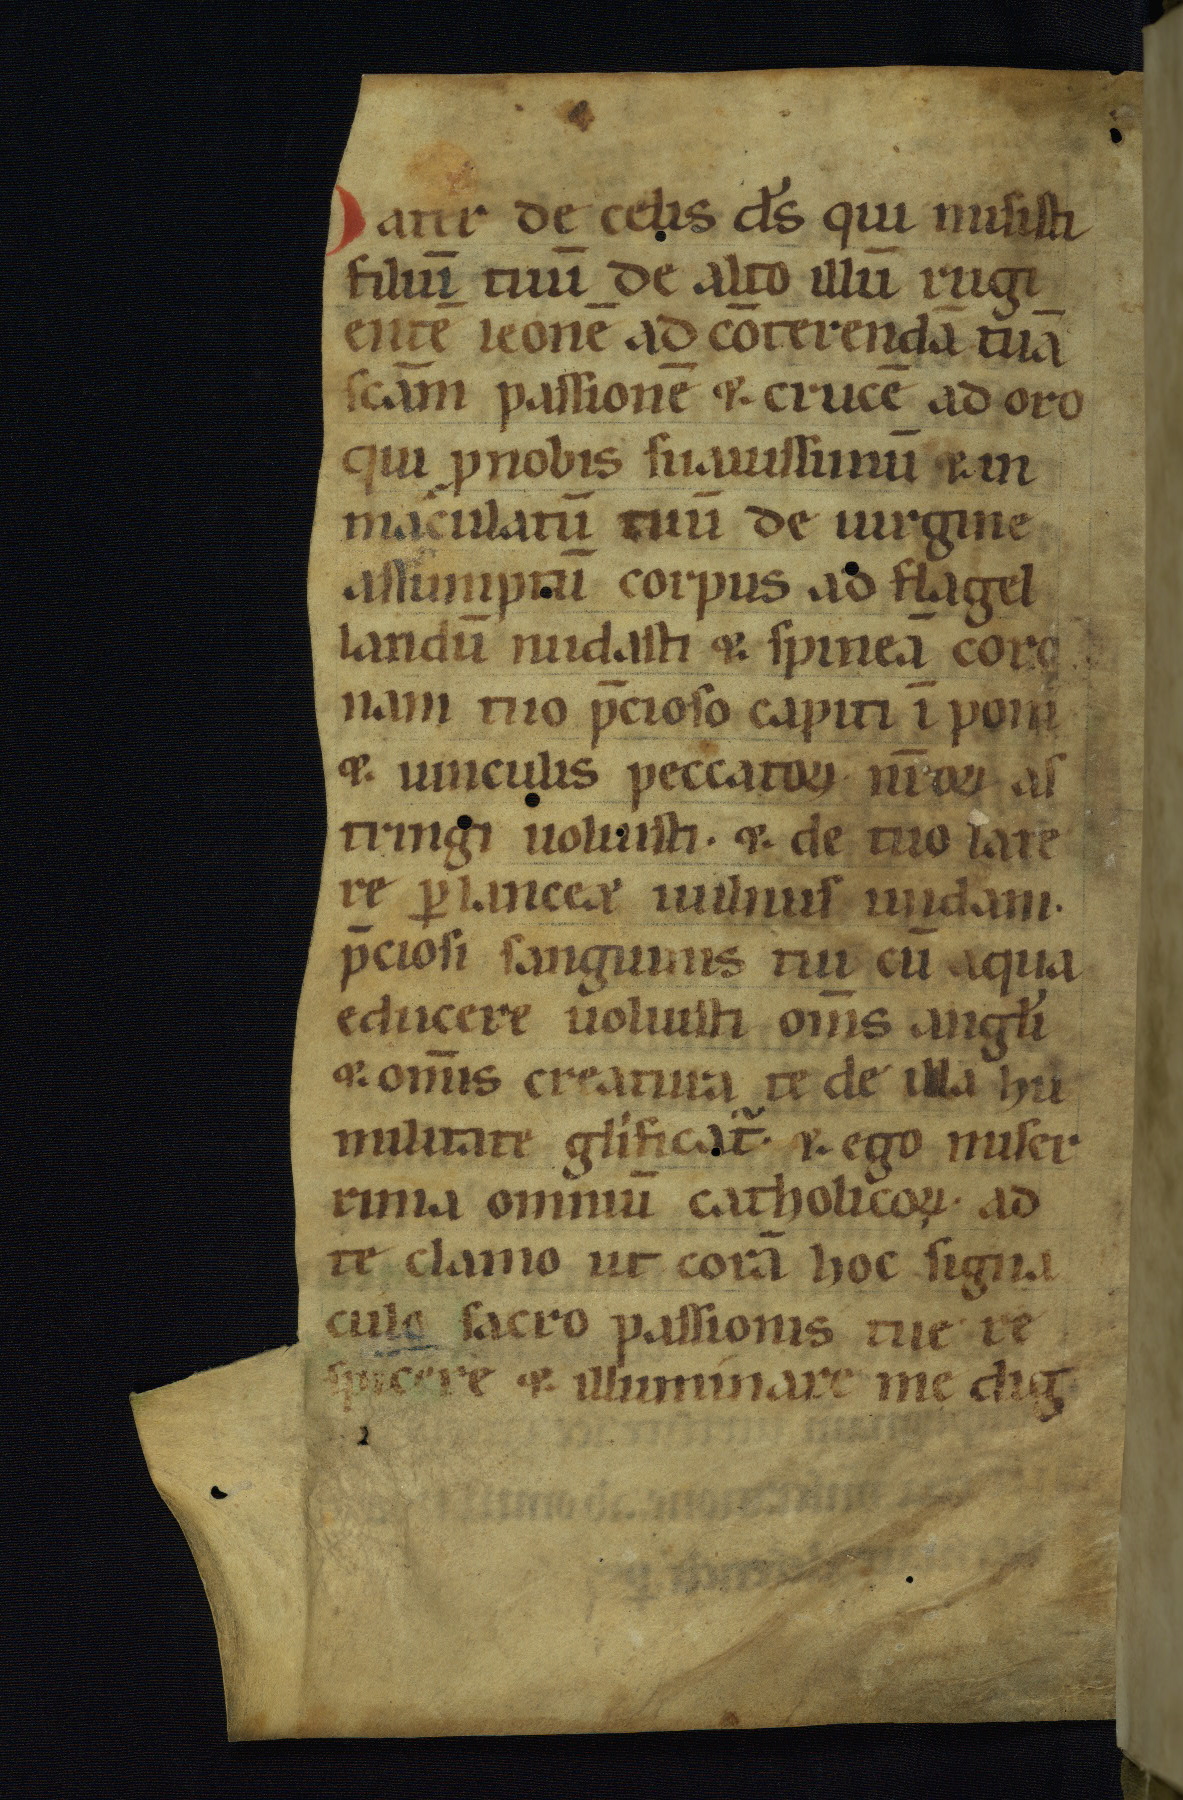 Pater de celis ds̄ qui misisti
filiū tuū de alto illū rugi
entē leonē ad cōterendā tuā
scām passionē & crucē adoro
qui pnobis suauissimū & in
maculatū tuū de uirgine
assumptū corpus ad flagel
landū nudasti & spineā coro
nam tuo p̄cioso capiti īponi
& uinculis peccatoꝝ nr̄oꝝ as
tringi uoluisti. & de tuo late
re ꝑ lanceę uulnus undam.
p̄ciosi sanguinis tui cū aqua
educere uoluisti om̄s angli
& om̄is creatura te de illa hu
militate glificat̄. & ego miser
rima omniū catholicoꝝ. ad
te clamo ut corā hoc signa
culo sacro passionis tue re
spicere & illuminare me dig